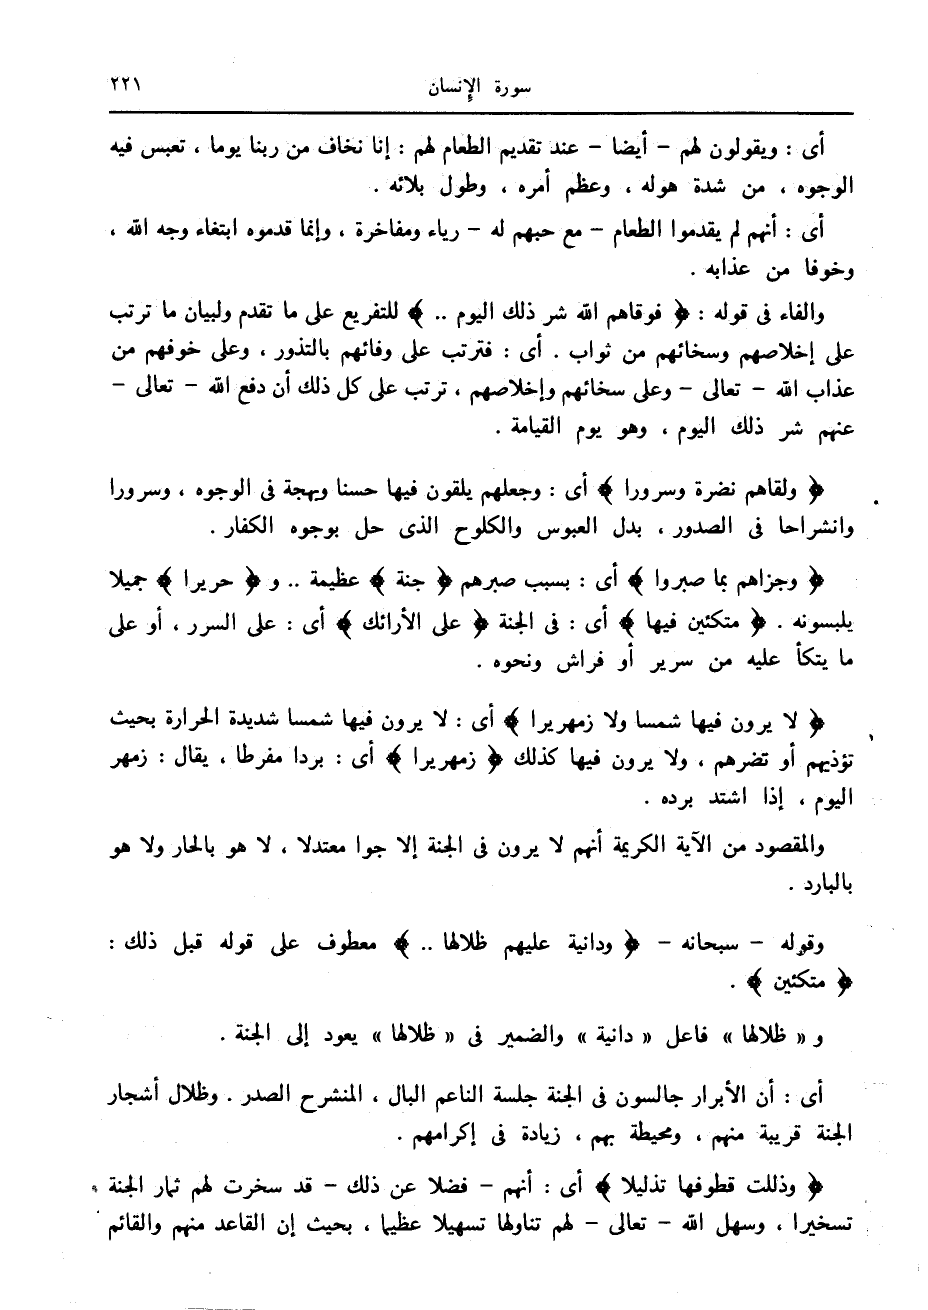 سورة الإنسان ٢٢١
أى : ويقولون لهم – أيضا – عند تقديم الطعام لهم : إنا نخاف من ربنا يوما ، تعبس فيه
الوجوه ، من شدة هوله ، وعظم أمره ، وطول بلائه .
أى : أنهم لم يقدموا الطعام – مع حبهم له – رياء ومفاخرة ، وإنما قدموه ابتغاء وجه الله ،
وخوفا من عذابه .
والفاء فى قوله : ﴿ فوقاهم الله شر ذلك اليوم .. ﴾ للتفريع على ما تقدم ولبيان ما ترتب
على إخلاصهم وسخائهم من ثواب . أى : فترتب على وفائهم بالنذور ، وعلى خوفهم من
عذاب الله – تعالى – وعلى سخائهم وإخلاصهم ، ترتب على كل ذلك أن دفع الله – تعالى –
عنهم شر ذلك اليوم ، وهو يوم القيامة .
﴿ ولقاهم نضرة وسرورا ﴾ أى : وجعلهم يلقون فيها حسنا وبهجة فى الوجوه ، وسرورا
وانشراحا فى الصدور ، بدل العبوس والكلوح الذى حل بوجوه الكفار .
﴿ وجزاهم بما صبروا ﴾ أى : بسبب صبرهم ﴿ جنة ﴾ عظيمة .. و ﴿ حريرا ﴾ جميلا
يلبسونه . ﴿ متكئين فيها ﴾ أى : فى الجنة ﴿ على الأرائك ﴾ أى : على السرر ، أو على
ما يتكأ عليه من سرير أو فراش ونحوه .
﴿ لا يرون فيها شمسا ولا زمهريرا ﴾ أى : لا يرون فيها شمسا شديدة الحرارة بحيث
تؤذيهم أو تضرهم ، ولا يرون فيها كذلك ﴿ زمهريرا ﴾ أى : بردا مفرطا ، يقال : زمهر
اليوم ، إذا اشتد برده .
والمقصود من الآية الكريمة أنهم لا يرون فى الجنة إلا جوا معتدلا ، لا هو بالحار ولا هو
بالبارد .
وقوله – سبحانه – ﴿ ودانية عليهم ظلالها .. ﴾ معطوف على قوله قبل ذلك :
﴿ متكئين ﴾ .
و « ظلالها » فاعل « دانية » والضمير فى « ظلالها » يعود إلى الجنة .
أى : أن الأبرار جالسون فى الجنة جلسة الناعم البال ، المنشرح الصدر . وظلال أشجار
الجنة قريبة منهم ، ومحيطة بهم ، زيادة فى إكرامهم .
﴿ وذللت قطوفها تذليلا ﴾ أى : أنهم – فضلا عن ذلك – قد سخرت لهم ثمار الجنة
تسخيرا ، وسهل الله – تعالى – لهم تناولها تسهيلا عظيما ، بحيث إن القاعد منهم والقائم